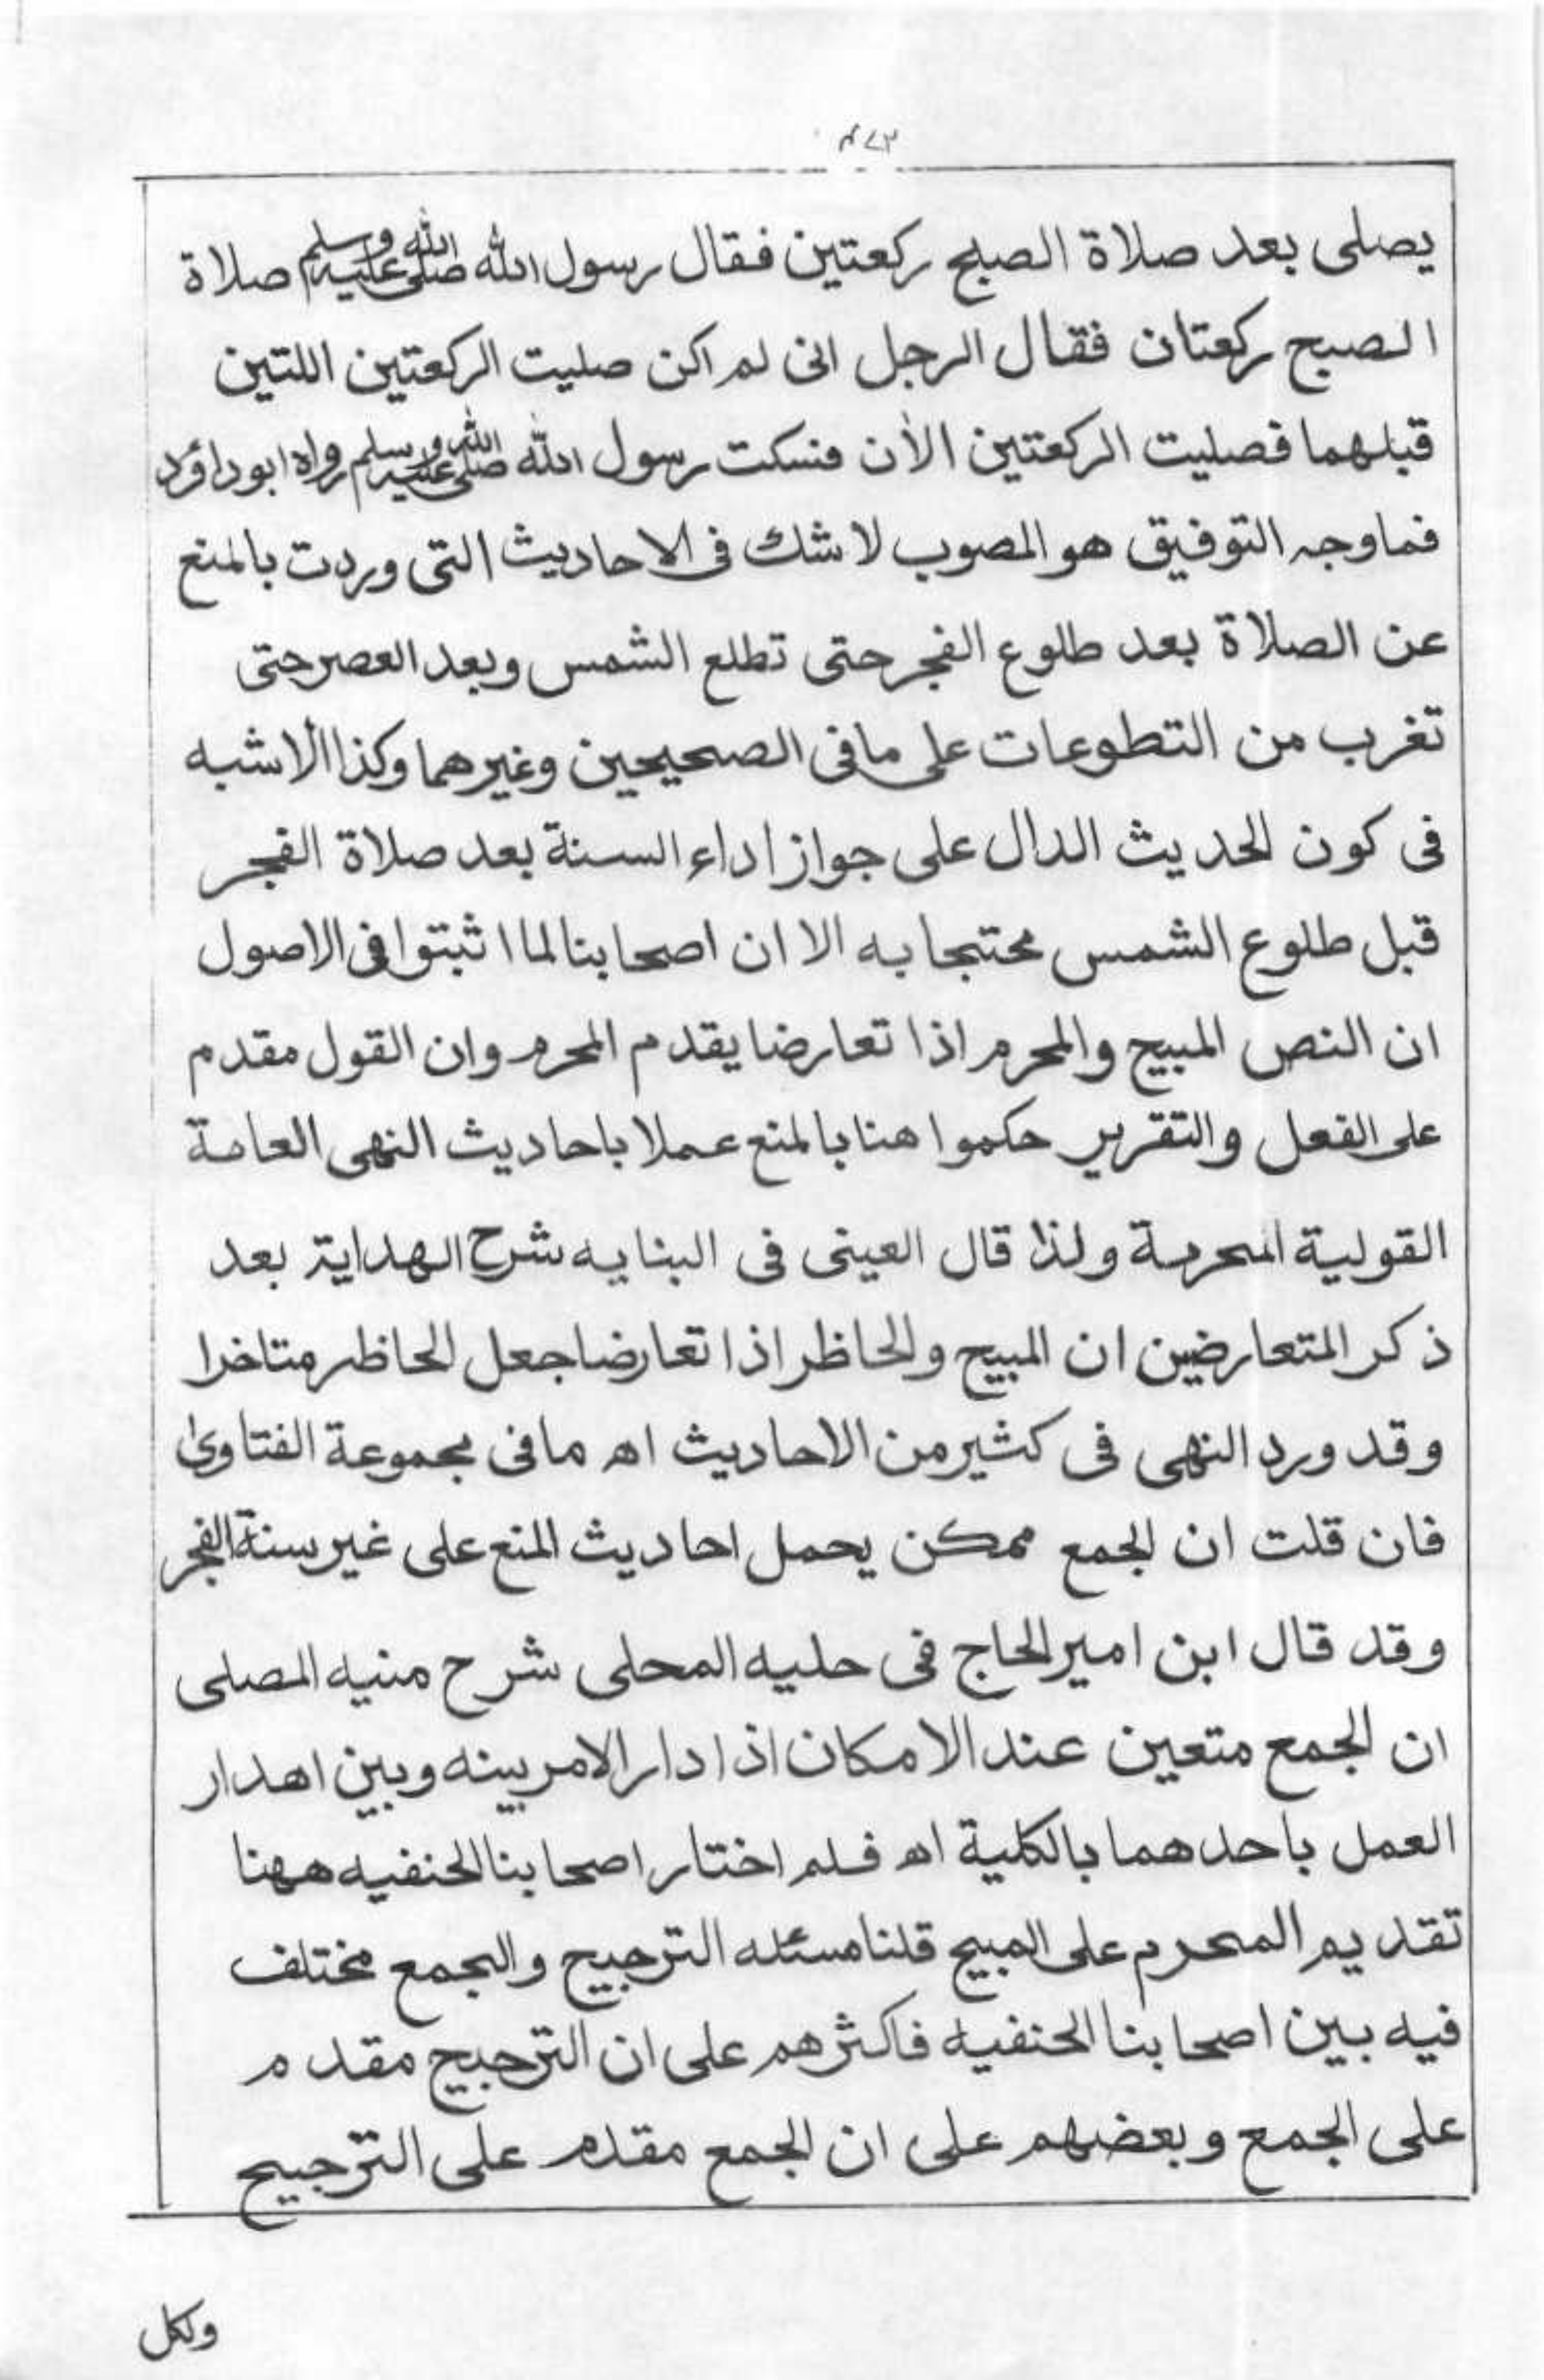 يصلى بعد صلاة الصبح ركعتين فقال رسول الله صلى الله عليه وسلم صلاة
الصبح ركعتان فقال الرجل انى لم اكن صليت الركعتين اللتين
قبلهما فصليت الركعتين الأن فسكت رسول الله صلى الله عليه وسلم رواه ابو داؤد
فما وجه التوفيق هو المصوب لا شك فى الاحاديث التى وردت بالمنع
عن الصلاة بعد طلوع الفجر حتى تطلع الشمس وبعد العصر حتى
تغرب من التطوعات على ما فى الصحيحين وغيرهما وكذا الاشبه
فى كون الحديث الدال على جواز اداء السنة بعد صلاة الفجر
قبل طلوع الشمس محتجا به الا ان اصحابنا لما اثبتوا فى الاصول
ان النص المبيح والمحرم اذا تعارضا يقدم المحرم وان القول مقدم
على الفعل والتقرير حكموا هنا بالمنع عملا باحاديث النهى العامة
القولية المحرمة ولذا قال العينى فى البنايه شرح الهداية بعد
ذكر المتعارضين ان المبيح والحاظر اذا تعارضا جعل الحاظر متاخرا
وقد ورد النهى فى كثير من الاحاديث اه ما فى مجموعة الفتاوى
فان قلت ان الجمع ممكن يحمل احاديث المنع على غير سنة الفجر
وقد قال ابن امير الحاج فى حليه المحلى شرح منيه المصلى
ان الجمع متعين عند الامكان اذا دار الامر بينه وبين اهدار
العمل باحدهما بالكلية اه فلم اختار اصحابنا الحنفيه ههنا
تقديم المحرم على المبيح قلنا مسئله الترجيح والجمع مختلف
فيه بين اصحابنا الحنفيه فاكثرهم على ان الترجيح مقدم
على الجمع وبعضهم على ان الجمع مقدم على الترجيح
ولكل